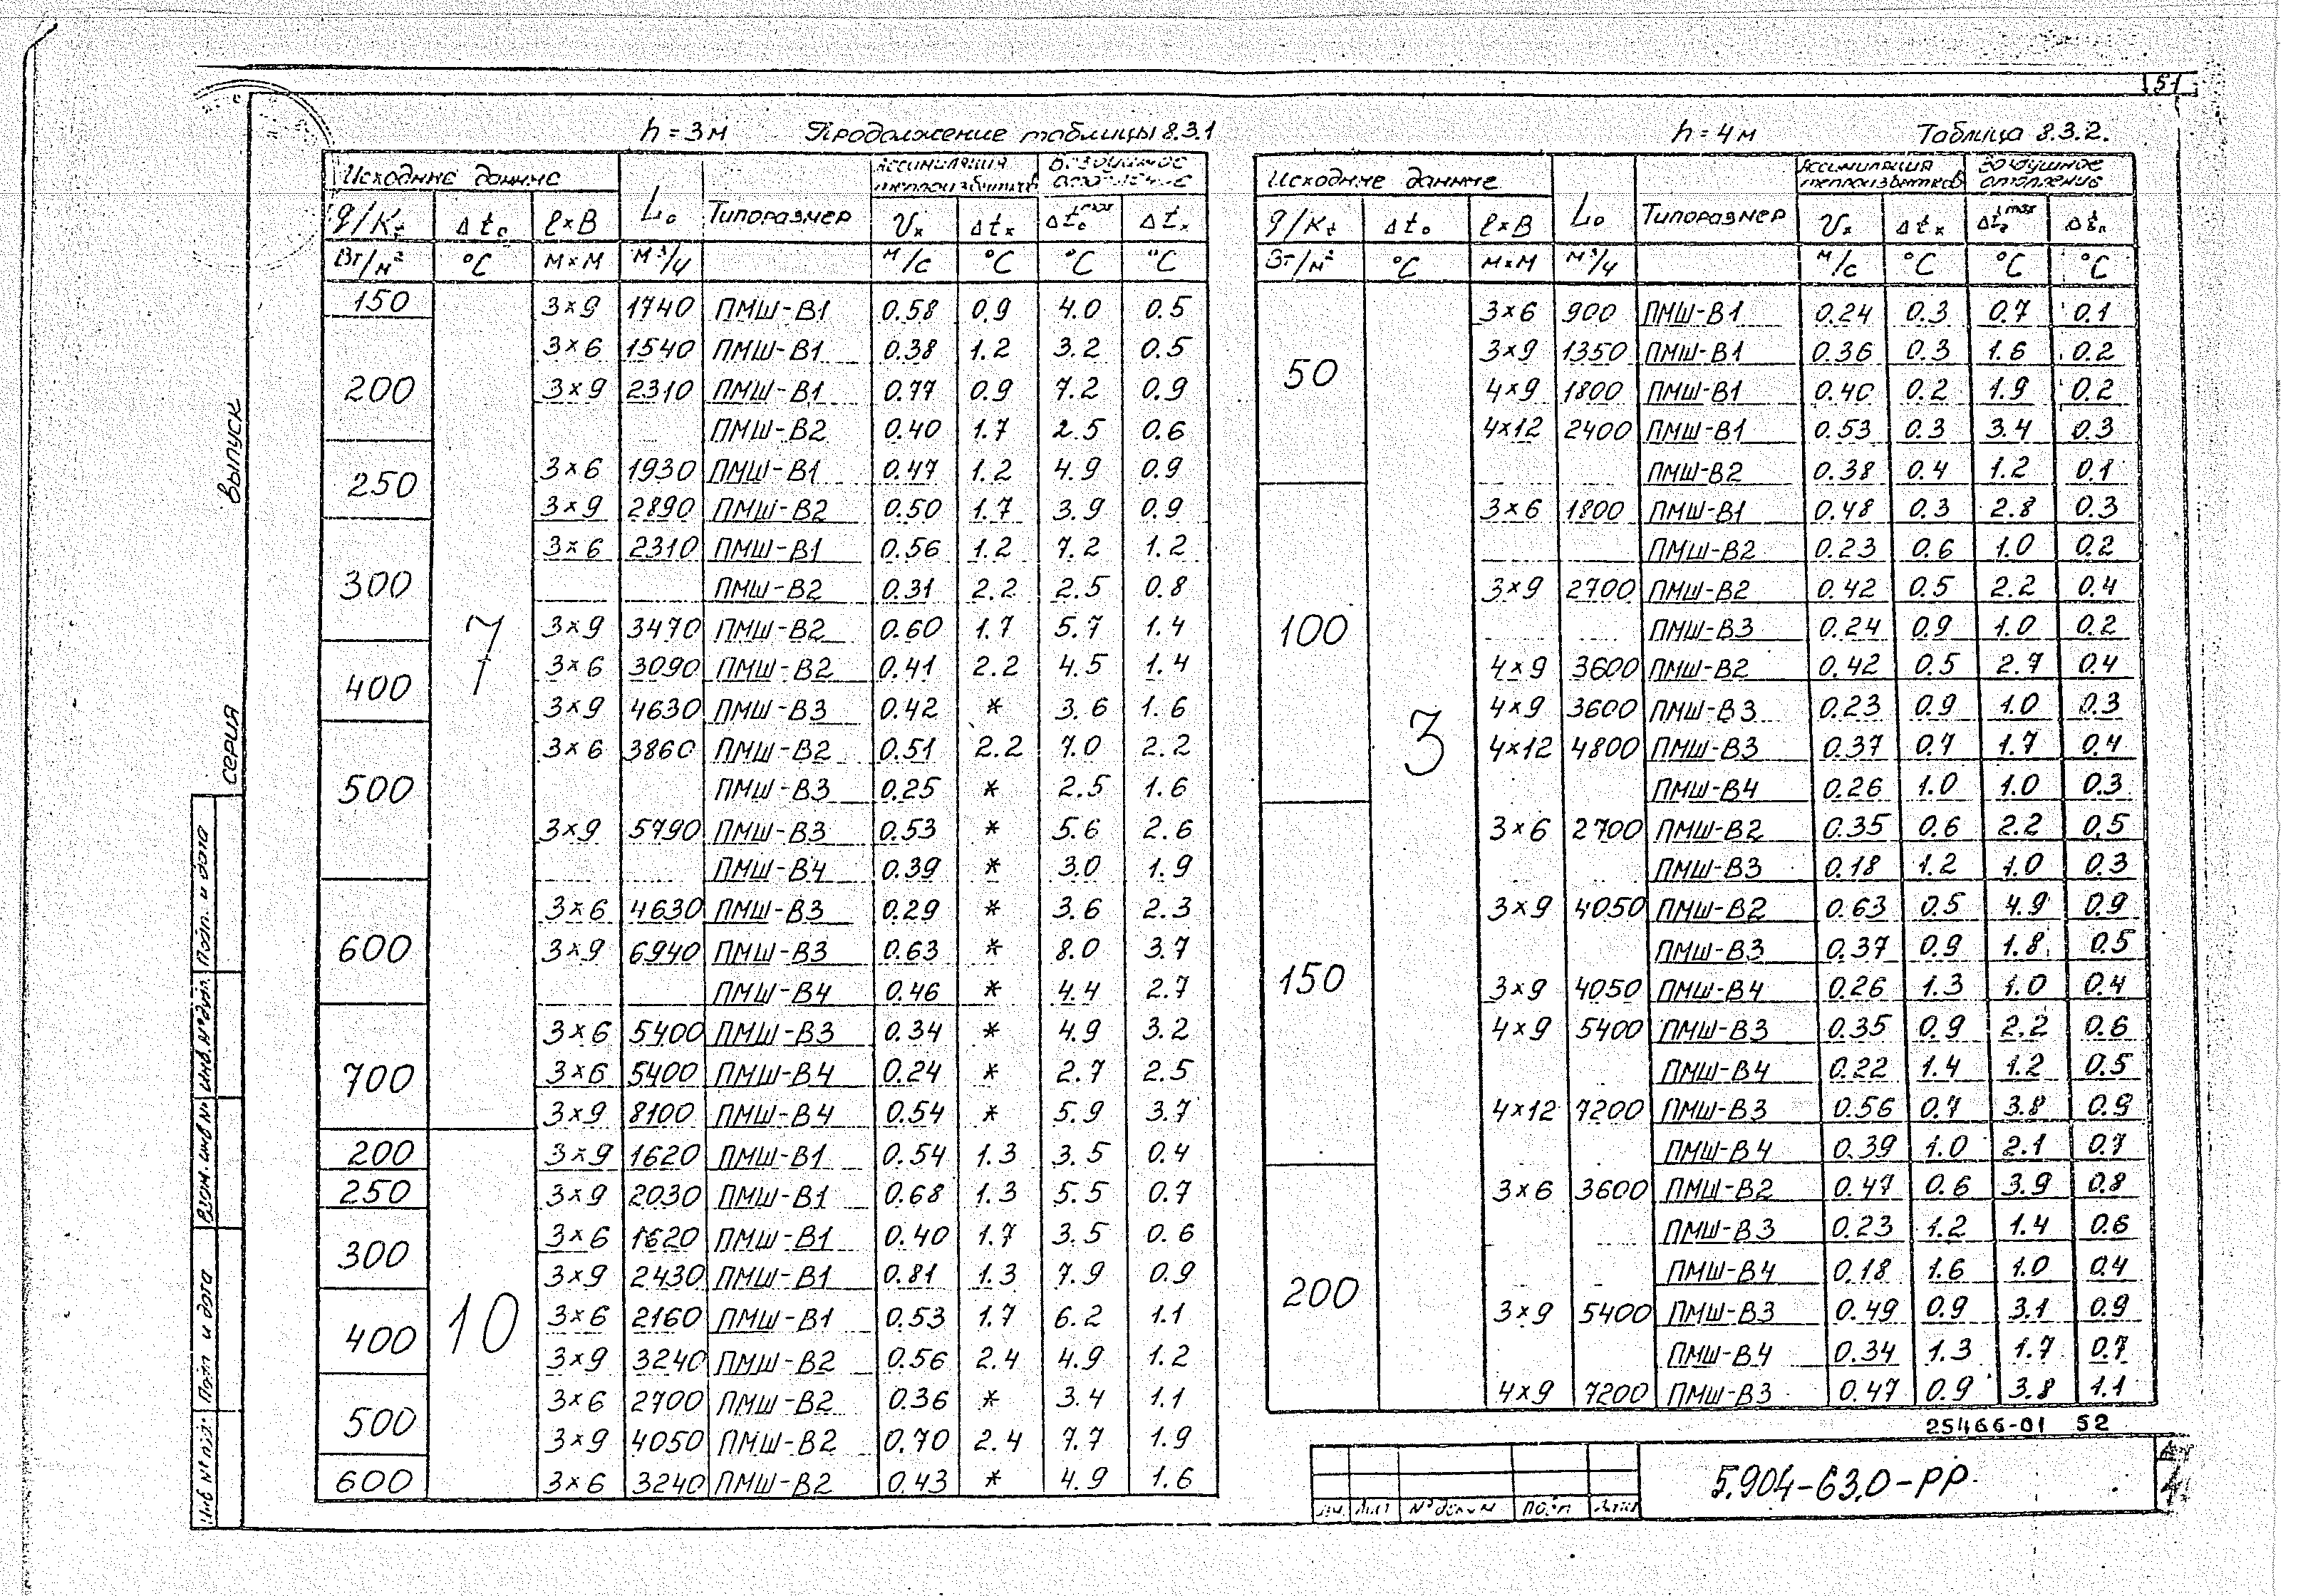 51
h = 3м Продолжение таблицы 8.3.1
Исходные данные L₀ Типоразмер Ассимиляция теплоизбытков Воздушное отопление
q/Kt Δt₀ l×B Vx Δtx Δt₀max Δtx
Вт/м² °C м×м м³/ч м/с °C °C °C
150 7 3×9 1740 ПМШ-В1 0.58 0.9 4.0 0.5
200 3×6 1540 ПМШ-В1 0.38 1.2 3.2 0.5
3×9 2310 ПМШ-В1 0.77 0.9 7.2 0.9
ПМШ-В2 0.40 1.7 2.5 0.6
250 3×6 1930 ПМШ-В1 0.47 1.2 4.9 0.9
3×9 2890 ПМШ-В2 0.50 1.7 3.9 0.9
300 3×6 2310 ПМШ-В1 0.56 1.2 7.2 1.2
ПМШ-В2 0.31 2.2 2.5 0.8
3×9 3470 ПМШ-В2 0.60 1.7 5.7 1.4
400 3×6 3090 ПМШ-В2 0.41 2.2 4.5 1.4
3×9 4630 ПМШ-В3 0.42 * 3.6 1.6
500 3×6 3860 ПМШ-В2 0.51 2.2 7.0 2.2
ПМШ-В3 0.25 * 2.5 1.6
3×9 5790 ПМШ-В3 0.53 * 5.6 2.6
ПМШ-В4 0.39 * 3.0 1.9
600 3×6 4630 ПМШ-В3 0.29 * 3.6 2.3
3×9 6940 ПМШ-В3 0.63 * 8.0 3.7
ПМШ-В4 0.46 * 4.4 2.7
700 3×6 5400 ПМШ-В3 0.34 * 4.9 3.2
3×6 5400 ПМШ-В4 0.24 * 2.7 2.5
3×9 8100 ПМШ-В4 0.54 * 5.9 3.7
200 10 3×9 1620 ПМШ-В1 0.54 1.3 3.5 0.4
250 3×9 2030 ПМШ-В1 0.68 1.3 5.5 0.7
300 3×6 1620 ПМШ-В1 0.40 1.7 3.5 0.6
3×9 2430 ПМШ-В1 0.81 1.3 7.9 0.9
400 3×6 2160 ПМШ-В1 0.53 1.7 6.2 1.1
3×9 3240 ПМШ-В2 0.56 2.4 4.9 1.2
500 3×6 2700 ПМШ-В2 0.36 * 3.4 1.1
3×9 4050 ПМШ-В2 0.70 2.4 7.7 1.9
600 3×6 3240 ПМШ-В2 0.43 * 4.9 1.6
h = 4м Таблица 8.3.2.
Исходные данные L₀ Типоразмер Ассимиляция теплоизбытков Воздушное отопление
q/Kt Δt₀ l×B Vx Δtx Δt₀max Δtп
Вт/м² °C м×м м³/ч м/с °C °C °C
50 3 3×6 900 ПМШ-В1 0.24 0.3 0.7 0.1
3×9 1350 ПМШ-В1 0.36 0.3 1.6 0.2
4×9 1800 ПМШ-В1 0.40 0.2 1.9 0.2
4×12 2400 ПМШ-В1 0.53 0.3 3.4 0.3
ПМШ-В2 0.38 0.4 1.2 0.1
100 3×6 1800 ПМШ-В1 0.48 0.3 2.8 0.3
ПМШ-В2 0.23 0.6 1.0 0.2
3×9 2700 ПМШ-В2 0.42 0.5 2.2 0.4
ПМШ-В3 0.24 0.9 1.0 0.2
4×9 3600 ПМШ-В2 0.42 0.5 2.7 0.4
4×9 3600 ПМШ-В3 0.23 0.9 1.0 0.3
4×12 4800 ПМШ-В3 0.37 0.7 1.7 0.4
ПМШ-В4 0.26 1.0 1.0 0.3
150 3×6 2700 ПМШ-В2 0.35 0.6 2.2 0.5
ПМШ-В3 0.18 1.2 1.0 0.3
3×9 4050 ПМШ-В2 0.63 0.5 4.9 0.9
ПМШ-В3 0.37 0.9 1.8 0.5
3×9 4050 ПМШ-В4 0.26 1.3 1.0 0.4
4×9 5400 ПМШ-В3 0.35 0.9 2.2 0.6
ПМШ-В4 0.22 1.4 1.2 0.5
4×12 7200 ПМШ-В3 0.56 0.7 3.8 0.9
ПМШ-В4 0.39 1.0 2.1 0.7
200 3×6 3600 ПМШ-В2 0.47 0.6 3.9 0.8
ПМШ-В3 0.23 1.2 1.4 0.6
ПМШ-В4 0.18 1.6 1.0 0.4
3×9 5400 ПМШ-В3 0.49 0.9 3.1 0.9
ПМШ-В4 0.34 1.3 1.7 0.7
4×9 7200 ПМШ-В3 0.47 0.9 3.8 1.1
25466-01 52
5.904-63.0-РР
Лист № докум Подп Дата
серия выпуск
Подп. и дата
Инв. № дубл.
Взам. инв №
Подп и дата
Инв № подл.